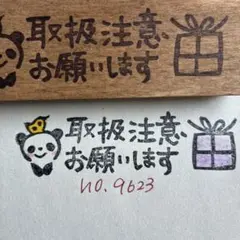 取扱注意
お願いします
取扱注意
お願いします
no.9623